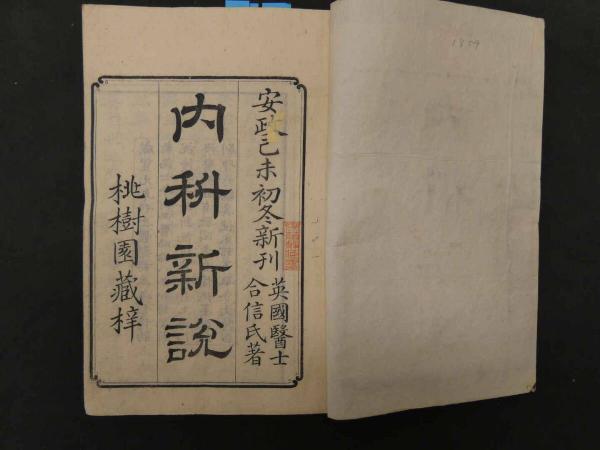 安政己未初冬新刊
英國醫士
合信氏著
内科新說
桃樹園藏梓
1859